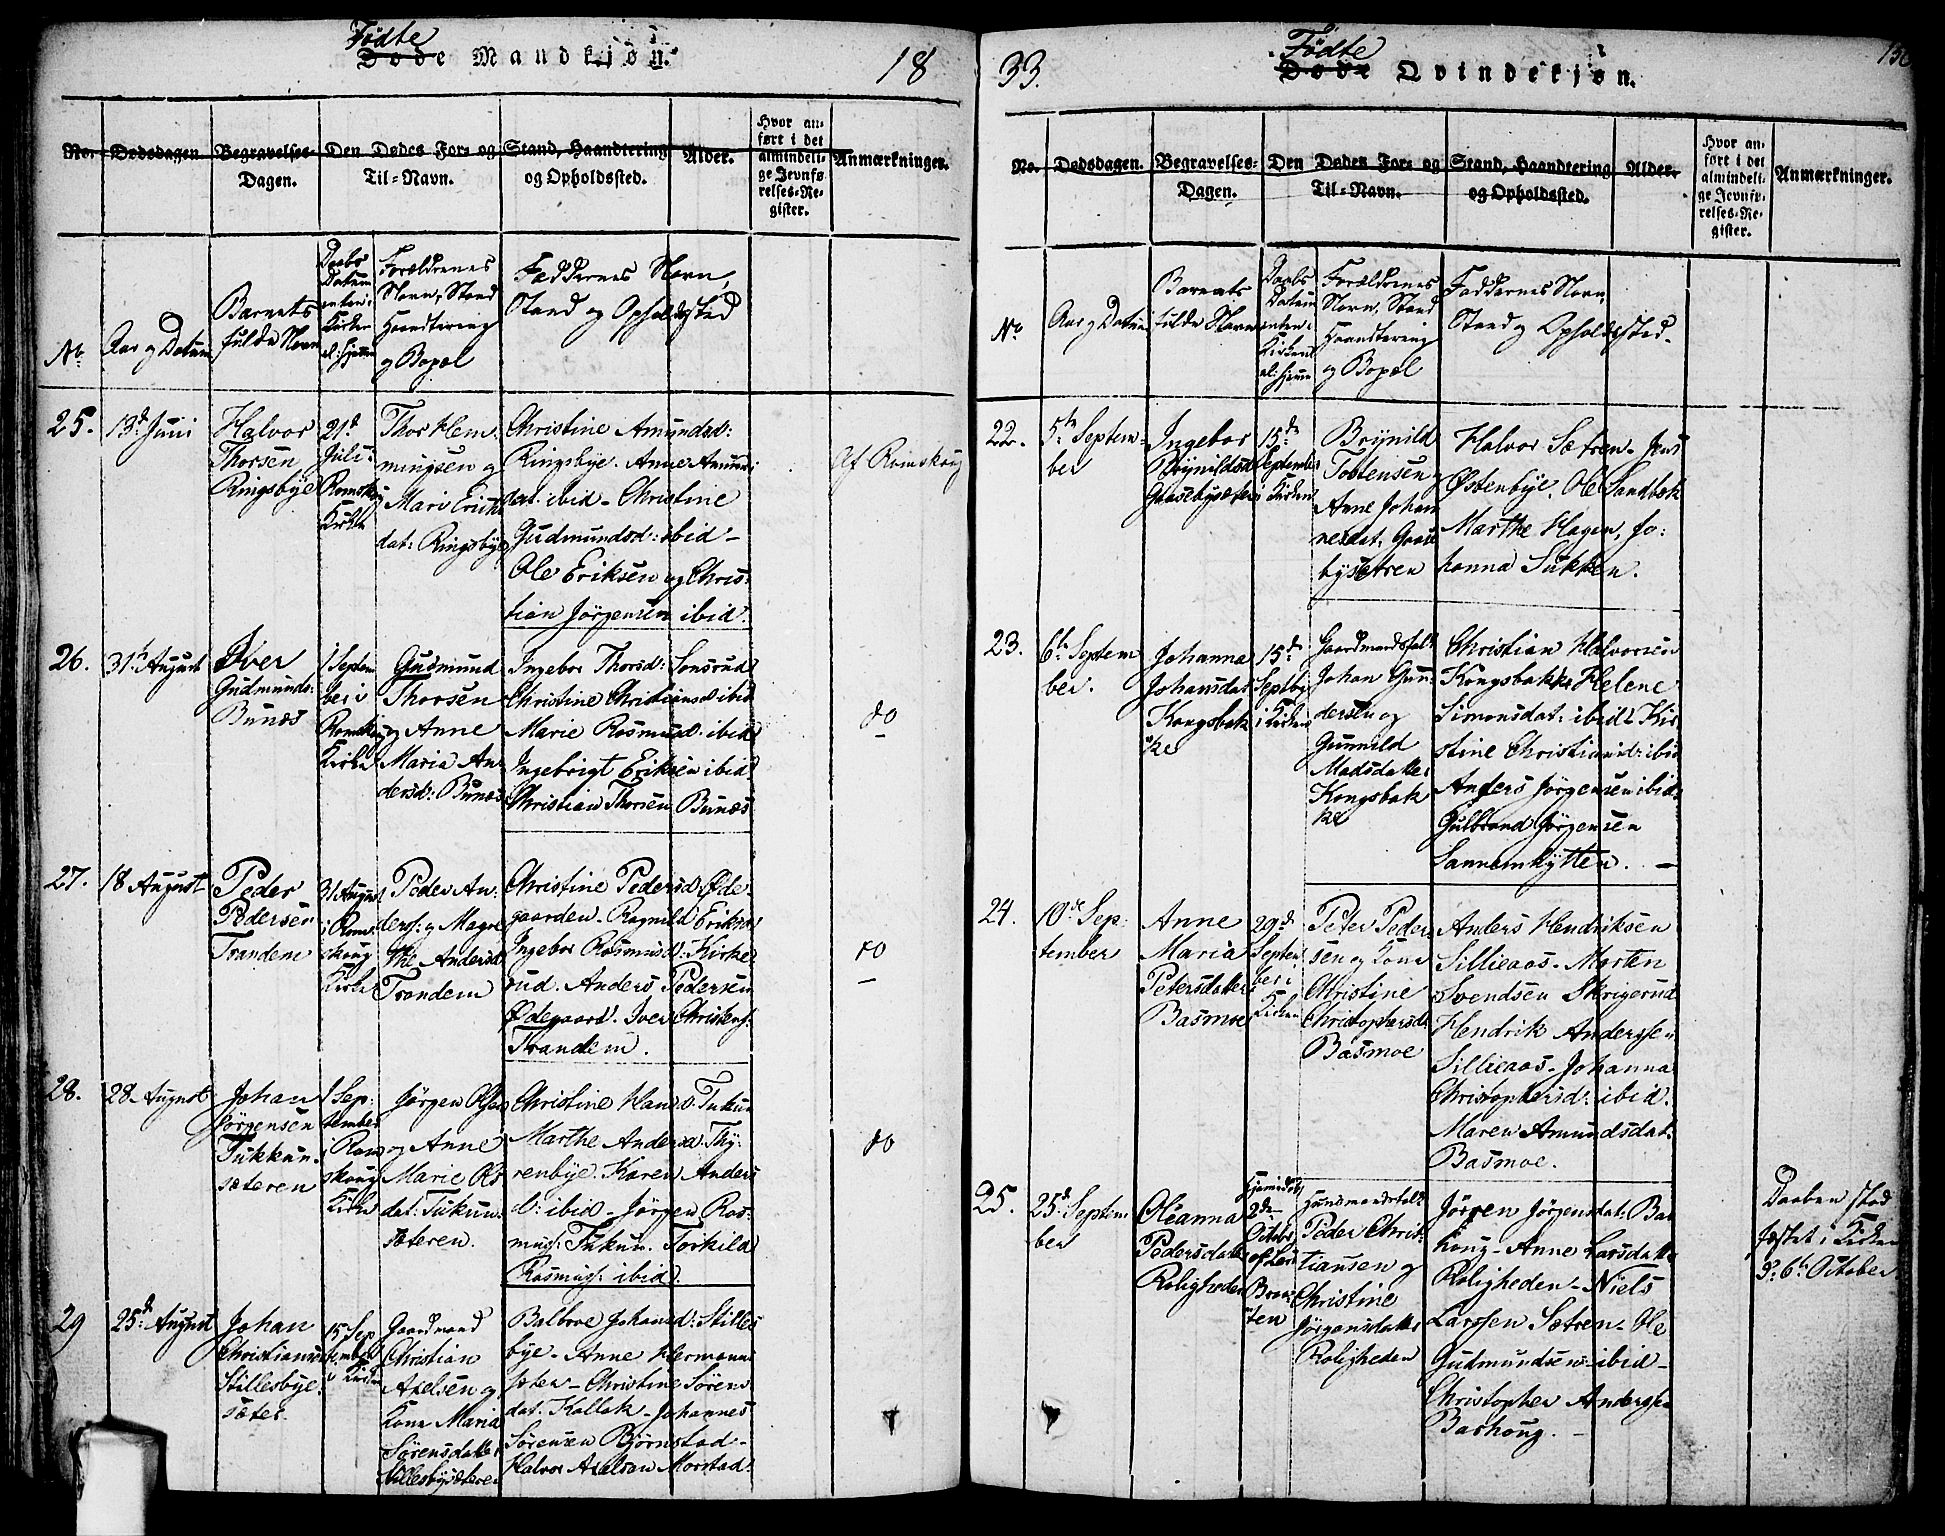 Fødte
Døde Mandkjøn.
18
No.
Dødsdagen
Begravelses-
Dagen.
Den Dødes For- og
Til-Navn.
Stand, Haandtering
og Opholdssted.
Alder.
Hvor an-
ført i det
almindeli-
ge Jevnfø-
relses-Re-
gister.
Anmærkninger.
No.
Aar og Datum
Barnets
fulde Navn
Daabs
Datum
enten i
Kirken
el: hjemme
Forældrenes
Navn, Stand
Haandtering
og Bopæl
Faddernes Navn,
Stand og Opholdssted
25.
13de Juni
Halvor
Thorsen
Ringsbye
21d
Juli i
Romskoug
Kirke
Thor Hem-
mingsen og
Mari Eriks
dat: Ringsbye
Christine Amundsd:
Ringsbye. Anne Amun
dat: ibid - Christine
Gudmundsd: ibid -
Ole Eriksen og Chris-
tian Jørgensen ibid.
Af Romskoug
26.
31te August
Iver
Gudmunds:
Bunæs
1 Septem
ber i
Romskoug
Kirke
Gudmund
Thorsen
og Anne
Maria An-
dersd: Bunæs
Ingebor Thorsd: Sonsrud
Christine Christiansd ibid
Marie Rasmusd: ibid
Ingebrigt Eriksen ibid
Christian Thorsen Bunæs
do
27.
18 August
Peder
Pedersen
Trandem
31 August
i Rom-
skoug
Kirke
Peder An-
ders: og Magre
the Andersd
Trandem
Christine Pedersd: Øde
gaarden. Ragnild Eriksd
Ingebor Rasmusd: Kirke
rud. Anders Pedersen
Ødegaard. Iver Christens:
Trandem.
do
28.
28 August
Johan
Jørgensen
Tukkun-
sæteren
1 Sep-
tember
i Rom
skoug
Kirke
Jørgen Olsen
og Anne
Marie Ras
dat: Tukun-
sæteren.
Christine Hansd: Tukun
Marthe Andersd: Thy-
renbye. Karen Anders
d: ibid - Jørgen Ras-
mus: Tukun. Torkild
Rasmus: ibid.
do
29
25de August
Johan
Christiansen
Stillesbye-
sæter.
15 Sep
tember
i Kirken
Gaardmand
Christian
Axelsen og
Kone Maria
Sørensdatter
Stillesbysæteren
Balbroe Johansd: Stilles
bye - Anne Hermanns
sæter - Christine Sørens
dat: Kollak - Johannes
Sørensen Bjørnstad -
Halvor Axelsen Morstad -
33.
Fødte
Døde Qvindekjøn.
No.
Dødsdagen.
Begravelses-
Dagen.
Den Dødes For- og
Til-Navn.
Stand, Haandtering
og Opholdssted.
Alder.
Hvor an-
ført i det
almindeli-
ge Jevnfø-
relses-Re-
gister.
Anmærkninger.
No
Aar og Datum
Barnets
fulde Navn
Daabs
Datum
enten i
Kirken
el: hjemme
Forældrenes
Navn, Stand
Haandtering
og Bopæl
Faddernes Navn,
Stand og Opholdssted.
22.
5te Septem-
ber
Ingebor
Brynildsd
Gaasebysæter
15de
September
i Kirken
Brynild
Tostensen og
Anne Johan
nesdat: Gaase
bysætren
Halvor Sætren - Jens
Østenbye. Ole Sandbæk
Marthe Hagen, Jo-
hanna Sukken.
23.
6te Septem
ber.
Johanna
Johansdat:
Kongsbak
ke
15de
Septbr
i Kirken
Gaardmandsfolk
Johan Gun
dersen og
Gunnild
Madsdatter
Kongsbak
ke
Christian Halvorsen
Kongsbakke Helene
Simonsdat: ibid - Kir
stine Christiansd: ibid
Anders Jørgensen ibid
Gulbrand Jørgensen
Sannemhytten.
24.
10de Sep-
tember
Anne
Maria
Petersdatter
Basmoe
29de
Septem
ber i
Kirken
Peter Peder
sen og Kone
Christine
Christophersd
Basmoe
Anders Hendriksen
Sillieaas - Morten
Svendsen Skrigerud
Hendrik Anderssen
Sillieaas - Johanna
Christophersd: ibid.
Maren Amundsdat:
Basmoe.
25.
25de Septem
ber
Oleanna
Pedersdatter
Roligheden
Hjemmedøbt
2de
October
af
ten
Huusmandsfolk
Peder Christ-
tiansen og
Christine
Jørgensdatter
Roligheden
Jørgen Jørgensdat: Bas
houg - Anne Larsdatter
Roligheden - Niels
Larssen Sætren - Ole
Gudmundsen - ibid -
Christopher Anderssen
Bashoug.
Daaben stad
fæstet i Kirken
d: 6te October